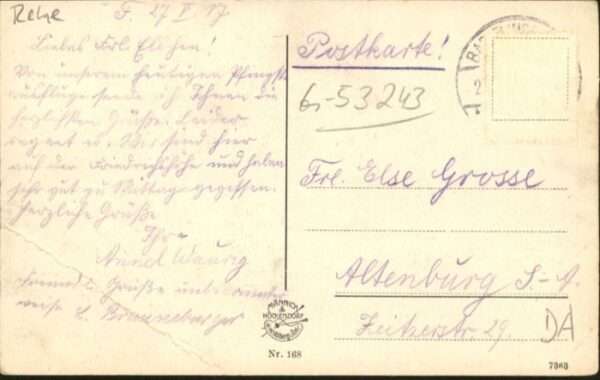 Rehe
F. 27 V 17
Liebes Frl. Elschen!
Von unserem heutigen Pfingst-
ausfluge sende ich Ihnen die
herzlichsten Grüße. Leider
regnet es. Wir sind hier
auf der Friedrichshöhe und haben
sehr gut zu Mittag gegessen.
Herzliche Grüße
Ihre
Freundl. Grüße
Postkarte!
6,-53243
Frl. Else Grosse
Altenburg S.-A.
Zeitzerstr. 29.
DA
Nr. 168
7363